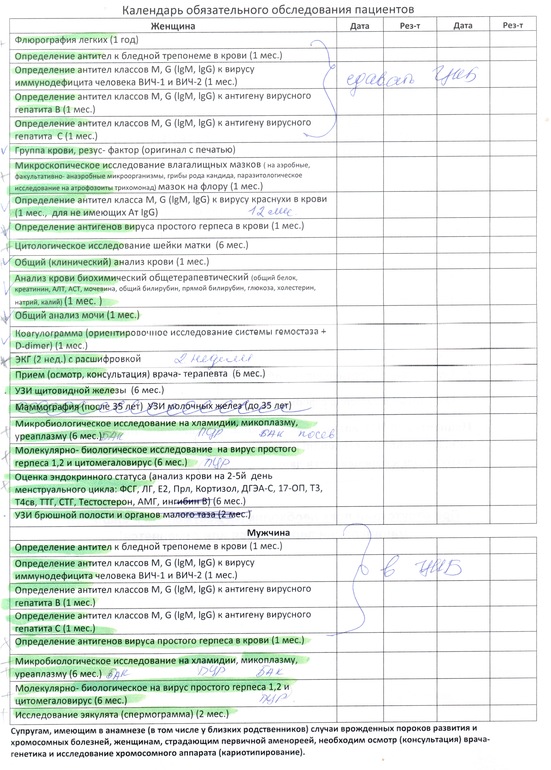 Календарь обязательного обследования пациентов
Женщина Дата Рез-т Дата Рез-т
Флюрография легких (1 год)
Определение антител к бледной трепонеме в крови (1 мес.)
Определение антител классов M, G (IgM, IgG) к вирусу
иммунодефицита человека ВИЧ-1 и ВИЧ-2 (1 мес.)
сдавать
Определение антител классов M, G (IgM, IgG) к антигену вирусного
гепатита В (1 мес.)
Определение антител классов M, G (IgM, IgG) к антигену вирусного
гепатита С (1 мес.)
Группа крови, резус- фактор (оригинал с печатью)
Микроскопическое исследование влагалищных мазков ( на аэробные,
факультативно- анаэробные микроорганизмы, грибы рода кандида, паразитологическое
исследование на атрофозоиты трихомонад) мазок на флору (1 мес.)
Определение антител класса M, G (IgM, IgG) к вирусу краснухи в крови
(1 мес., для не имеющих Ат IgG) 12 мес
Определение антигенов вируса простого герпеса в крови (1 мес.)
Цитологическое исследование шейки матки (6 мес.)
Общий (клинический) анализ крови (1 мес.)
Анализ крови биохимический общетерапевтический (общий белок,
креатинин, АЛТ, АСТ, мочевина, общий билирубин, прямой билирубин, глюкоза, холестерин,
натрий, калий) (1 мес. )
Общий анализ мочи (1 мес.)
Коагулограмма (ориентировочное исследование системы гемостаза +
D-dimer) (1 мес.)
ЭКГ (2 нед.) с расшифровкой 2 недели
Прием (осмотр, консультация) врача- терапевта (6 мес.)
УЗИ щитовидной железы (6 мес.)
Маммография (после 35 лет) УЗИ молочных желез (до 35 лет)
Микробиологическое исследование на хламидии, микоплазму,
уреаплазму (6 мес.) бак ПЦР бак посев
Молекулярно- биологическое исследование на вирус простого
герпеса 1,2 и цитомегаловирус (6 мес.) ПЦР
Оценка эндокринного статуса (анализ крови на 2-5й день
менструального цикла: ФСГ, ЛГ, Е2, Прл, Кортизол, ДГЭА-С, 17-ОП, Т3,
Т4св, ТТГ, СТГ, Тестостерон, АМГ, ингибин В) (6 мес.)
УЗИ брюшной полости и органов малого таза (2 мес.)
Мужчина
Определение антител к бледной трепонеме в крови (1 мес.)
Определение антител классов M, G (IgM, IgG) к вирусу
иммунодефицита человека ВИЧ-1 и ВИЧ-2 (1 мес.)
в
Определение антител классов M, G (IgM, IgG) к антигену вирусного
гепатита В (1 мес.)
Определение антител классов M, G (IgM, IgG) к антигену вирусного
гепатита С (1 мес.)
Определение антигенов вируса простого герпеса в крови (1 мес.)
Микробиологическое исследование на хламидии, микоплазму,
уреаплазму (6 мес.) бак ПЦР бак
Молекулярно- биологическое исследование на вирус простого герпеса 1,2 и
цитомегаловирус (6 мес.) ПЦР
Исследование эякулята (спермограмма) (2 мес.)
Супругам, имеющим в анамнезе (в том числе у близких родственников) случаи врожденных пороков развития и
хромосомных болезней, женщинам, страдающим первичной аменореей, необходим осмотр (консультация) врача-
генетика и исследование хромосомного аппарата (кариотипирование).